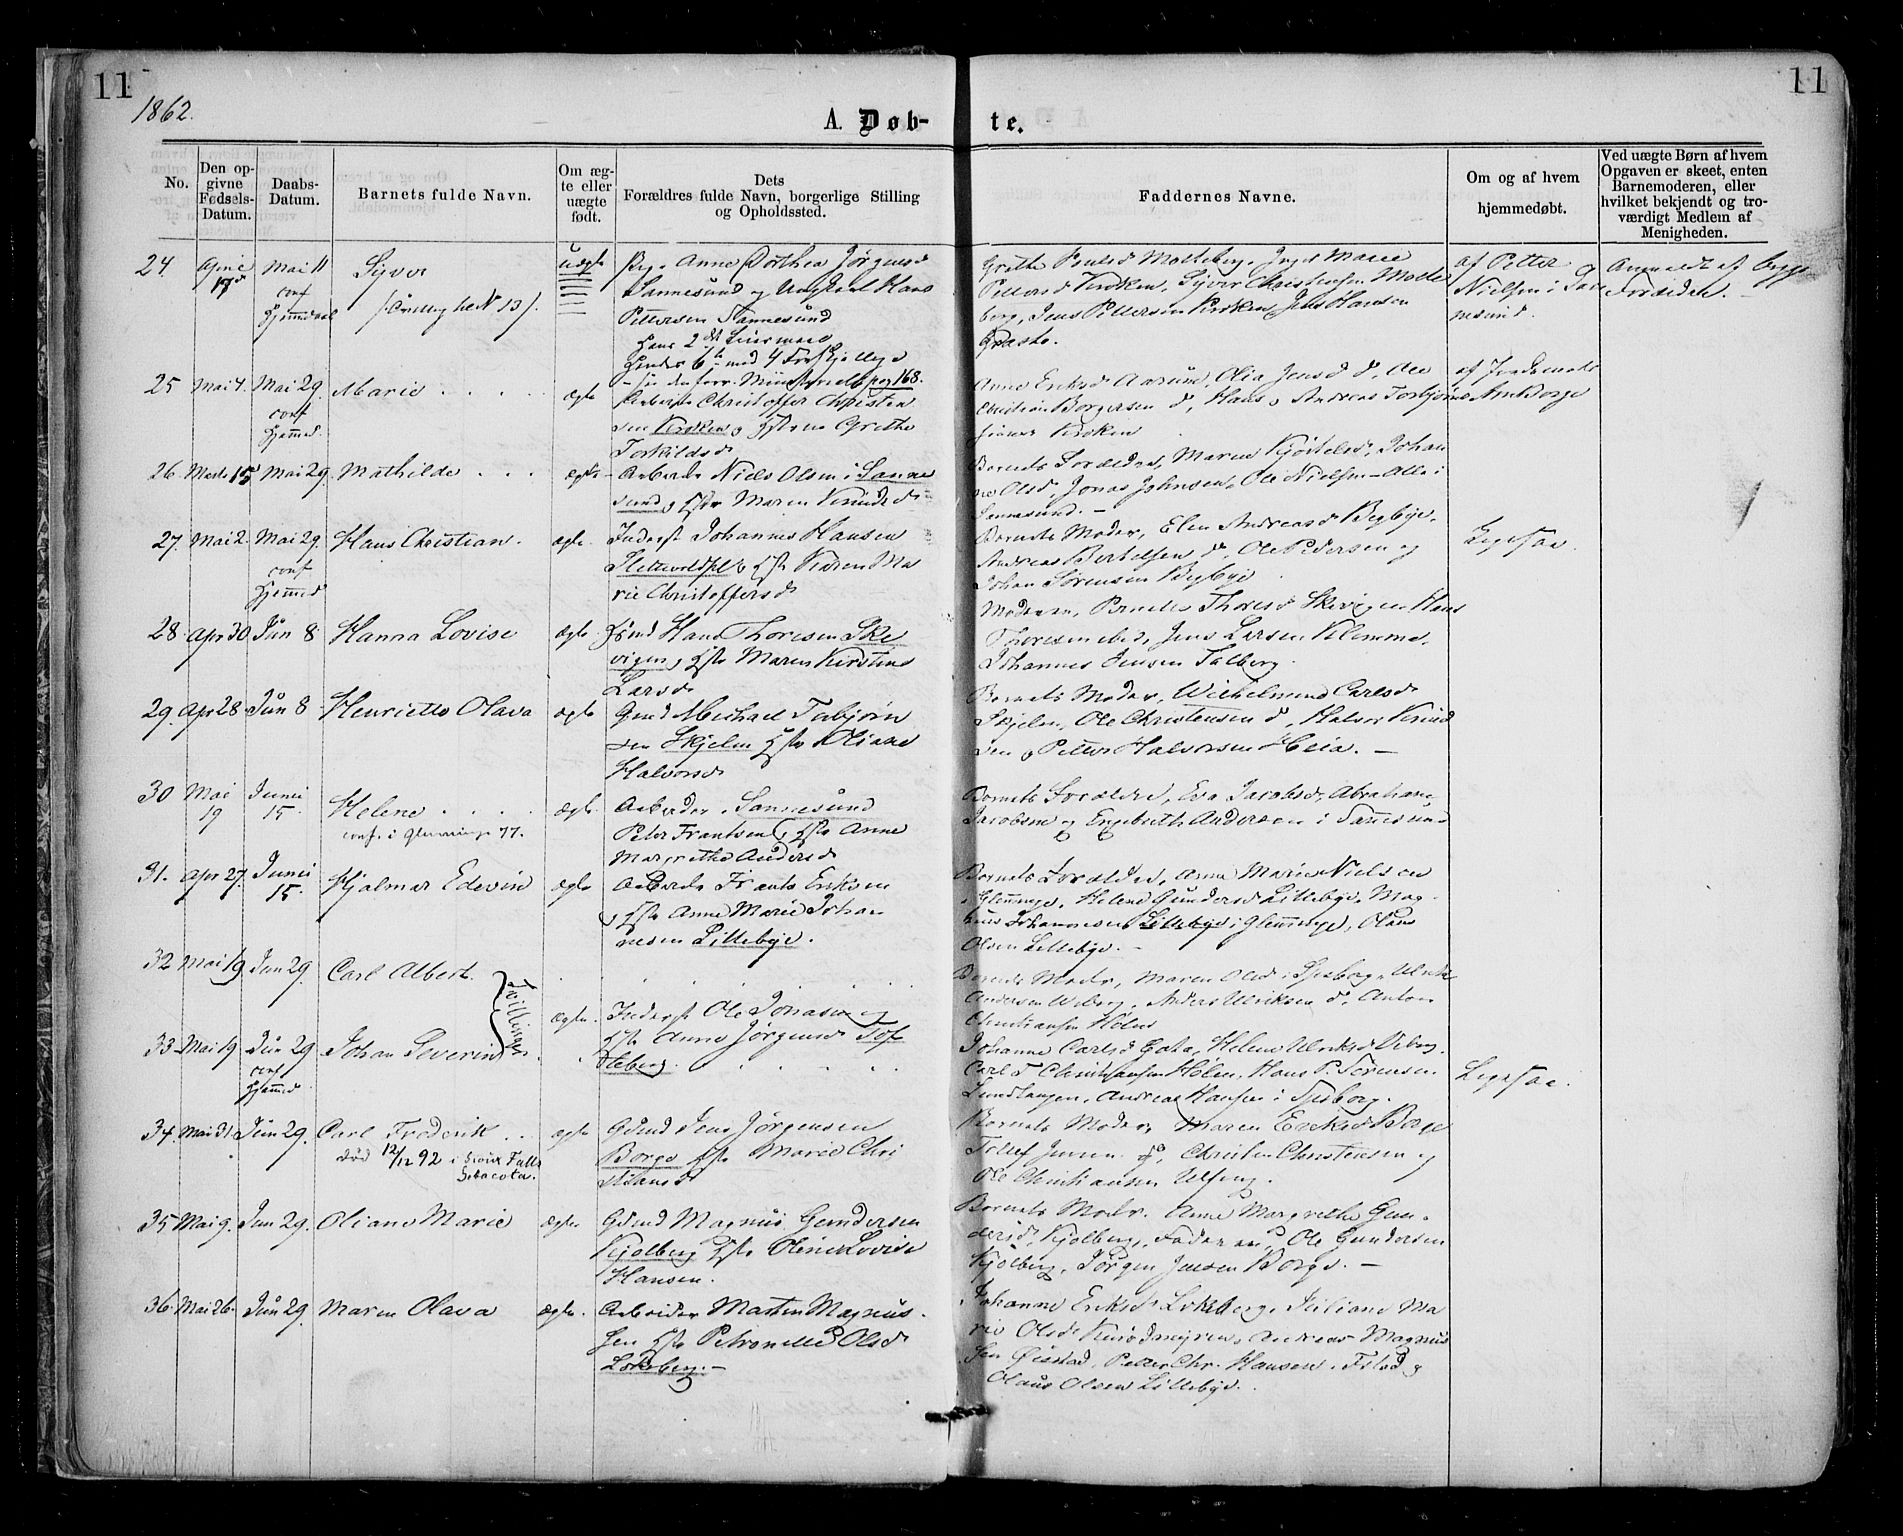 11
11
1862.
A. Døb-
te.
No.
Den op-
givne
Fødsels-
Datum.
Daabs-
Datum.
Barnets fulde Navn.
Om æg-
te eller
uægte
født.
Dets
Forældres fulde Navn, borgerlige Stilling
og Opholdssted.
Faddernes Navne.
Om og af hvem
hjemmedøbt.
Ved uægte Børn af hvem
Opgaven er skeet, enten
Barnemoderen, eller
hvilket bekjendt og tro-
værdigt Medlem af
Menigheden.
24
17
Mai 11
conf
Syver
Uægte
Pig. Anne Dorthea Jørgensd
Sannesund og Ungkarl Hans
Pettersen Sannesund
Hans 2
Hendes 6te med 4
pag 168.
Grethe Paulsd Molteberg, Inger Marie
Pettersd Kroken, Syver Christensen Molte
berg, Jens Pettersen Kroken, Jens Hansen
af Petter
Nielsen i San
nesund.
Anmeldt af begge
Forældre. –
25
Mai 4.
Mai 29
conf
Hjemmed.
Marie
ægte
Christoffer Christen
sen Kroken, Hstr Grethe
Torkildsd
Anne Eriksd Aarum, Olia Jensd do, Ole
Christian Borgersen do, Hans Andreas Torbjørns
Kroken
26
15
Mai 29
Mathilde
ægte
Arbeider Niels Olsen i Sanne
sund, Hstr Maren Knudsd
Barnets Forældre, Maren Kjøstelsd, Johan
ne Olsd, Jonas Johnsen, Ole Nielsen – Alle i
Sannesund. –
27.
Mai 2.
Mai 29.
conf
Hjemmed
Hans Christian.
ægte.
Inderst Johannes Hansen
Hstr Karen Ma
rie Christoffersd
Barnets Moder, Elen Andreasd Begbye,
Andreas Bertelsen do, Ole Pedersen og
Johan Sørensen Begbye
Ligesaa.
28.
Apr 30.
Jun 8
Hanna Lovise
ægte
Hans Thoresen Ske
vigen, Hstr Maren Kirstine
Larsd
Moderen, Thoresd Skevigen Hans
Thoresen ibid, Jens Larsen Klemme.
Johannes Jensen Talberg.
29.
Apr 28
Jun 8
Henriette Olava
ægte
Gmd Michael Torbjørn
sen Skjelin Hstr Oliane
Halvorsd
Barnets Moder, Wilhelmine Carlsd
Skjelin, Ole Christensen do, Halvor Knud
sen, Petter Halvorsen Heia. –
30
Mai
19
Junii
15.
Helene
conf. i Glemminge 77.
ægte
Arbeider i Sannesund
Peter Frantsen, Hstr Anne
Margrethe Andersd
Barnets Forældre, Eva Jacobsd, Abraham
Jacobsen og Engebreth Andersen i Sannesund
31.
Apr 27.
Junii
15.
Hjalmar Edevin
ægte
Arbeider Frants Eriksen
og Hstr Anne Marie Johan
nesen Lillebye.
Barnets Forældre, Anne Marie Nielsen
i Glemminge, Helene Gundersd Lillebye, Mag-
nus Johannesen Lillebye i Glemminge, Olaus
Olsen Lillebye. –
32
Mai 19
Jun 29.
Carl Albert.
Tvillinger
Moder, Maren Olsd i Spsborg, Ulrik
Andersen Wiberg, Anders Ulriksen do, Anton
Christiansen Holm
33
Mai 19
Jun 29
conf
Hjemmed
Johan Severin
ægte.
Inderst Ole Jonasen og
Hstr Anne Jørgensd Tof
teberg.
Johanne Carlsd Gata, Helene Ulriksd Viberg
Carl do Christiansen Holm, Hans P. Sørensen
Andreas Hansen i Spsborg.
Ligesaa.
34
Mai 31.
Jun 29.
Carl Frederik
død 12/12 92 i Sioux Falls
Dacota.
ægte
Gbmd Jens Jørgensen
Borge Hstr Marie Chri
stiansd
Barnets Moder, Maren Eriksd Borge
Tollef Jensen do, Christen Christensen og
Ole Christiansen Ulfeng.
35
Mai 9.
Jun 29.
Oliane Marie
ægte.
Gbmd Magnus Gundersen
Kjølberg Hstr Oline Lovise
Hansen.
Barnets Moder. Anne Margrethe Gun-
dersd Kjølberg, Faderen, Ole Gundersen
Kjølberg, Jørgen Jensen Borge. –
36.
Mai 26.
Jun 29.
Maren Olava
ægte.
Arbeider Martin Magnus-
sen Hstr Petronelle Olsd
Lokeberg. –
Johanne Eriksd Lokeberg, Juliane Ma
rie Olsd Andreas Magnus
sen Øiestad, Petter Chr. Hansen og
Olaus Olsen Lillebye.